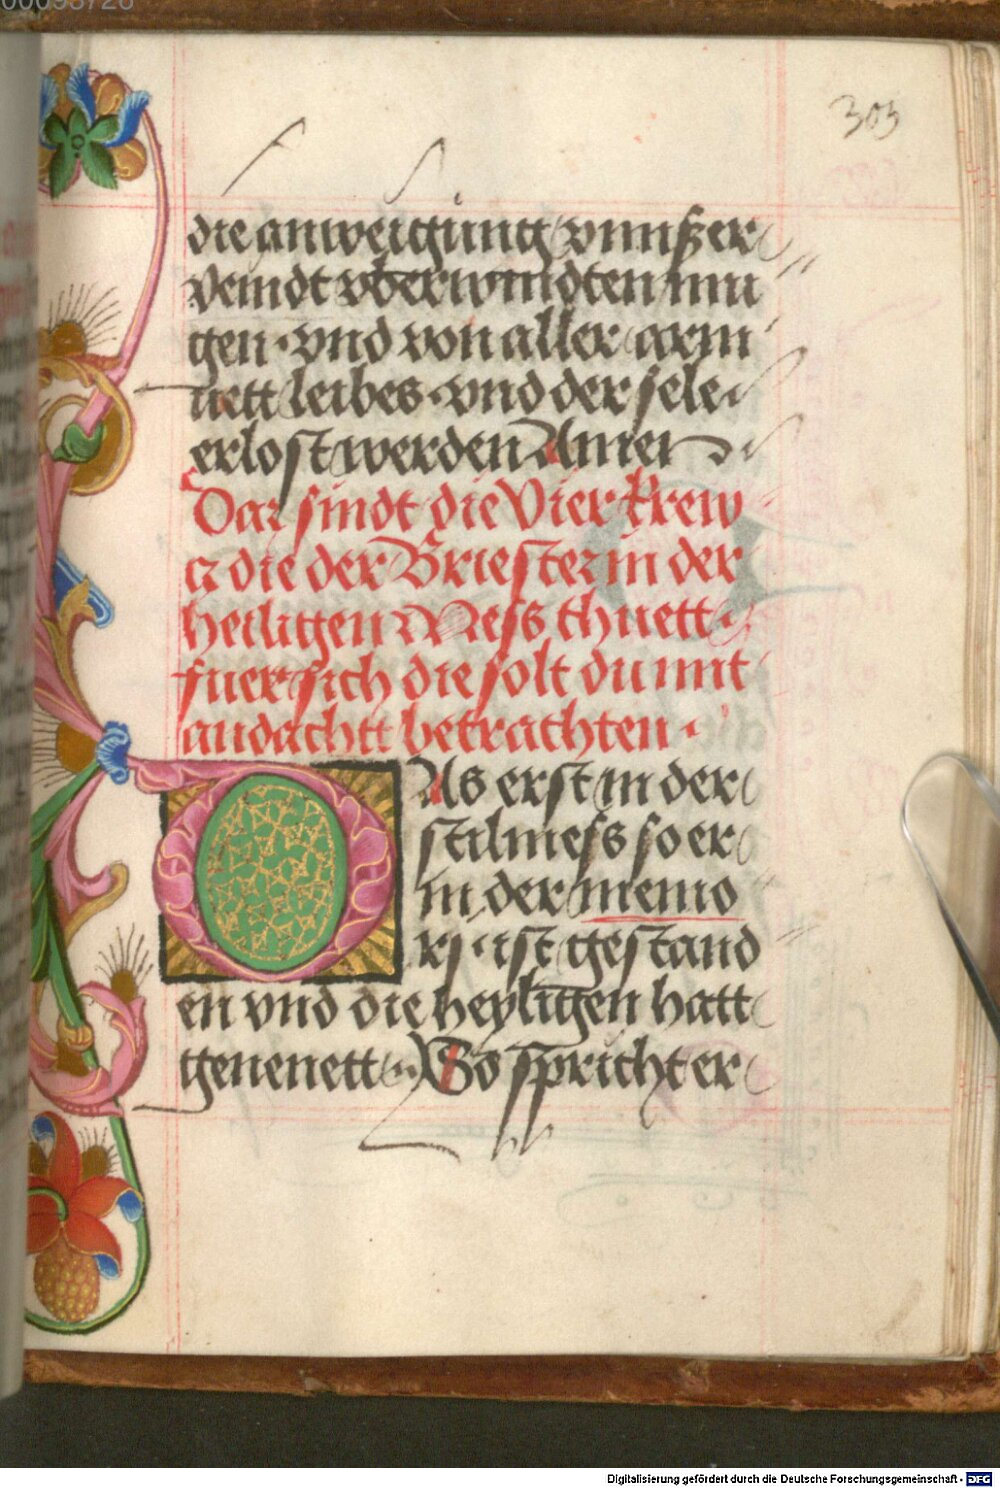 00093726
303
die anweigung vnnszer
veindt vberwindten mu
gen · vnd von aller arm
uett leibes · vnd der sele
erlost werden Amen
Daz sindt die Vier krew
cz die der Briester in der
heiligen Mess thuett ·
fuer sich die solt du mit
andachtt betrachten ·
DAs erst in der
stilmess so er
in der memo
rj · ist gestand
en vnd die heyligen hatt
genenett · So spricht er
Digitalisierung gefördert durch die Deutsche Forschungsgemeinschaft - DFG